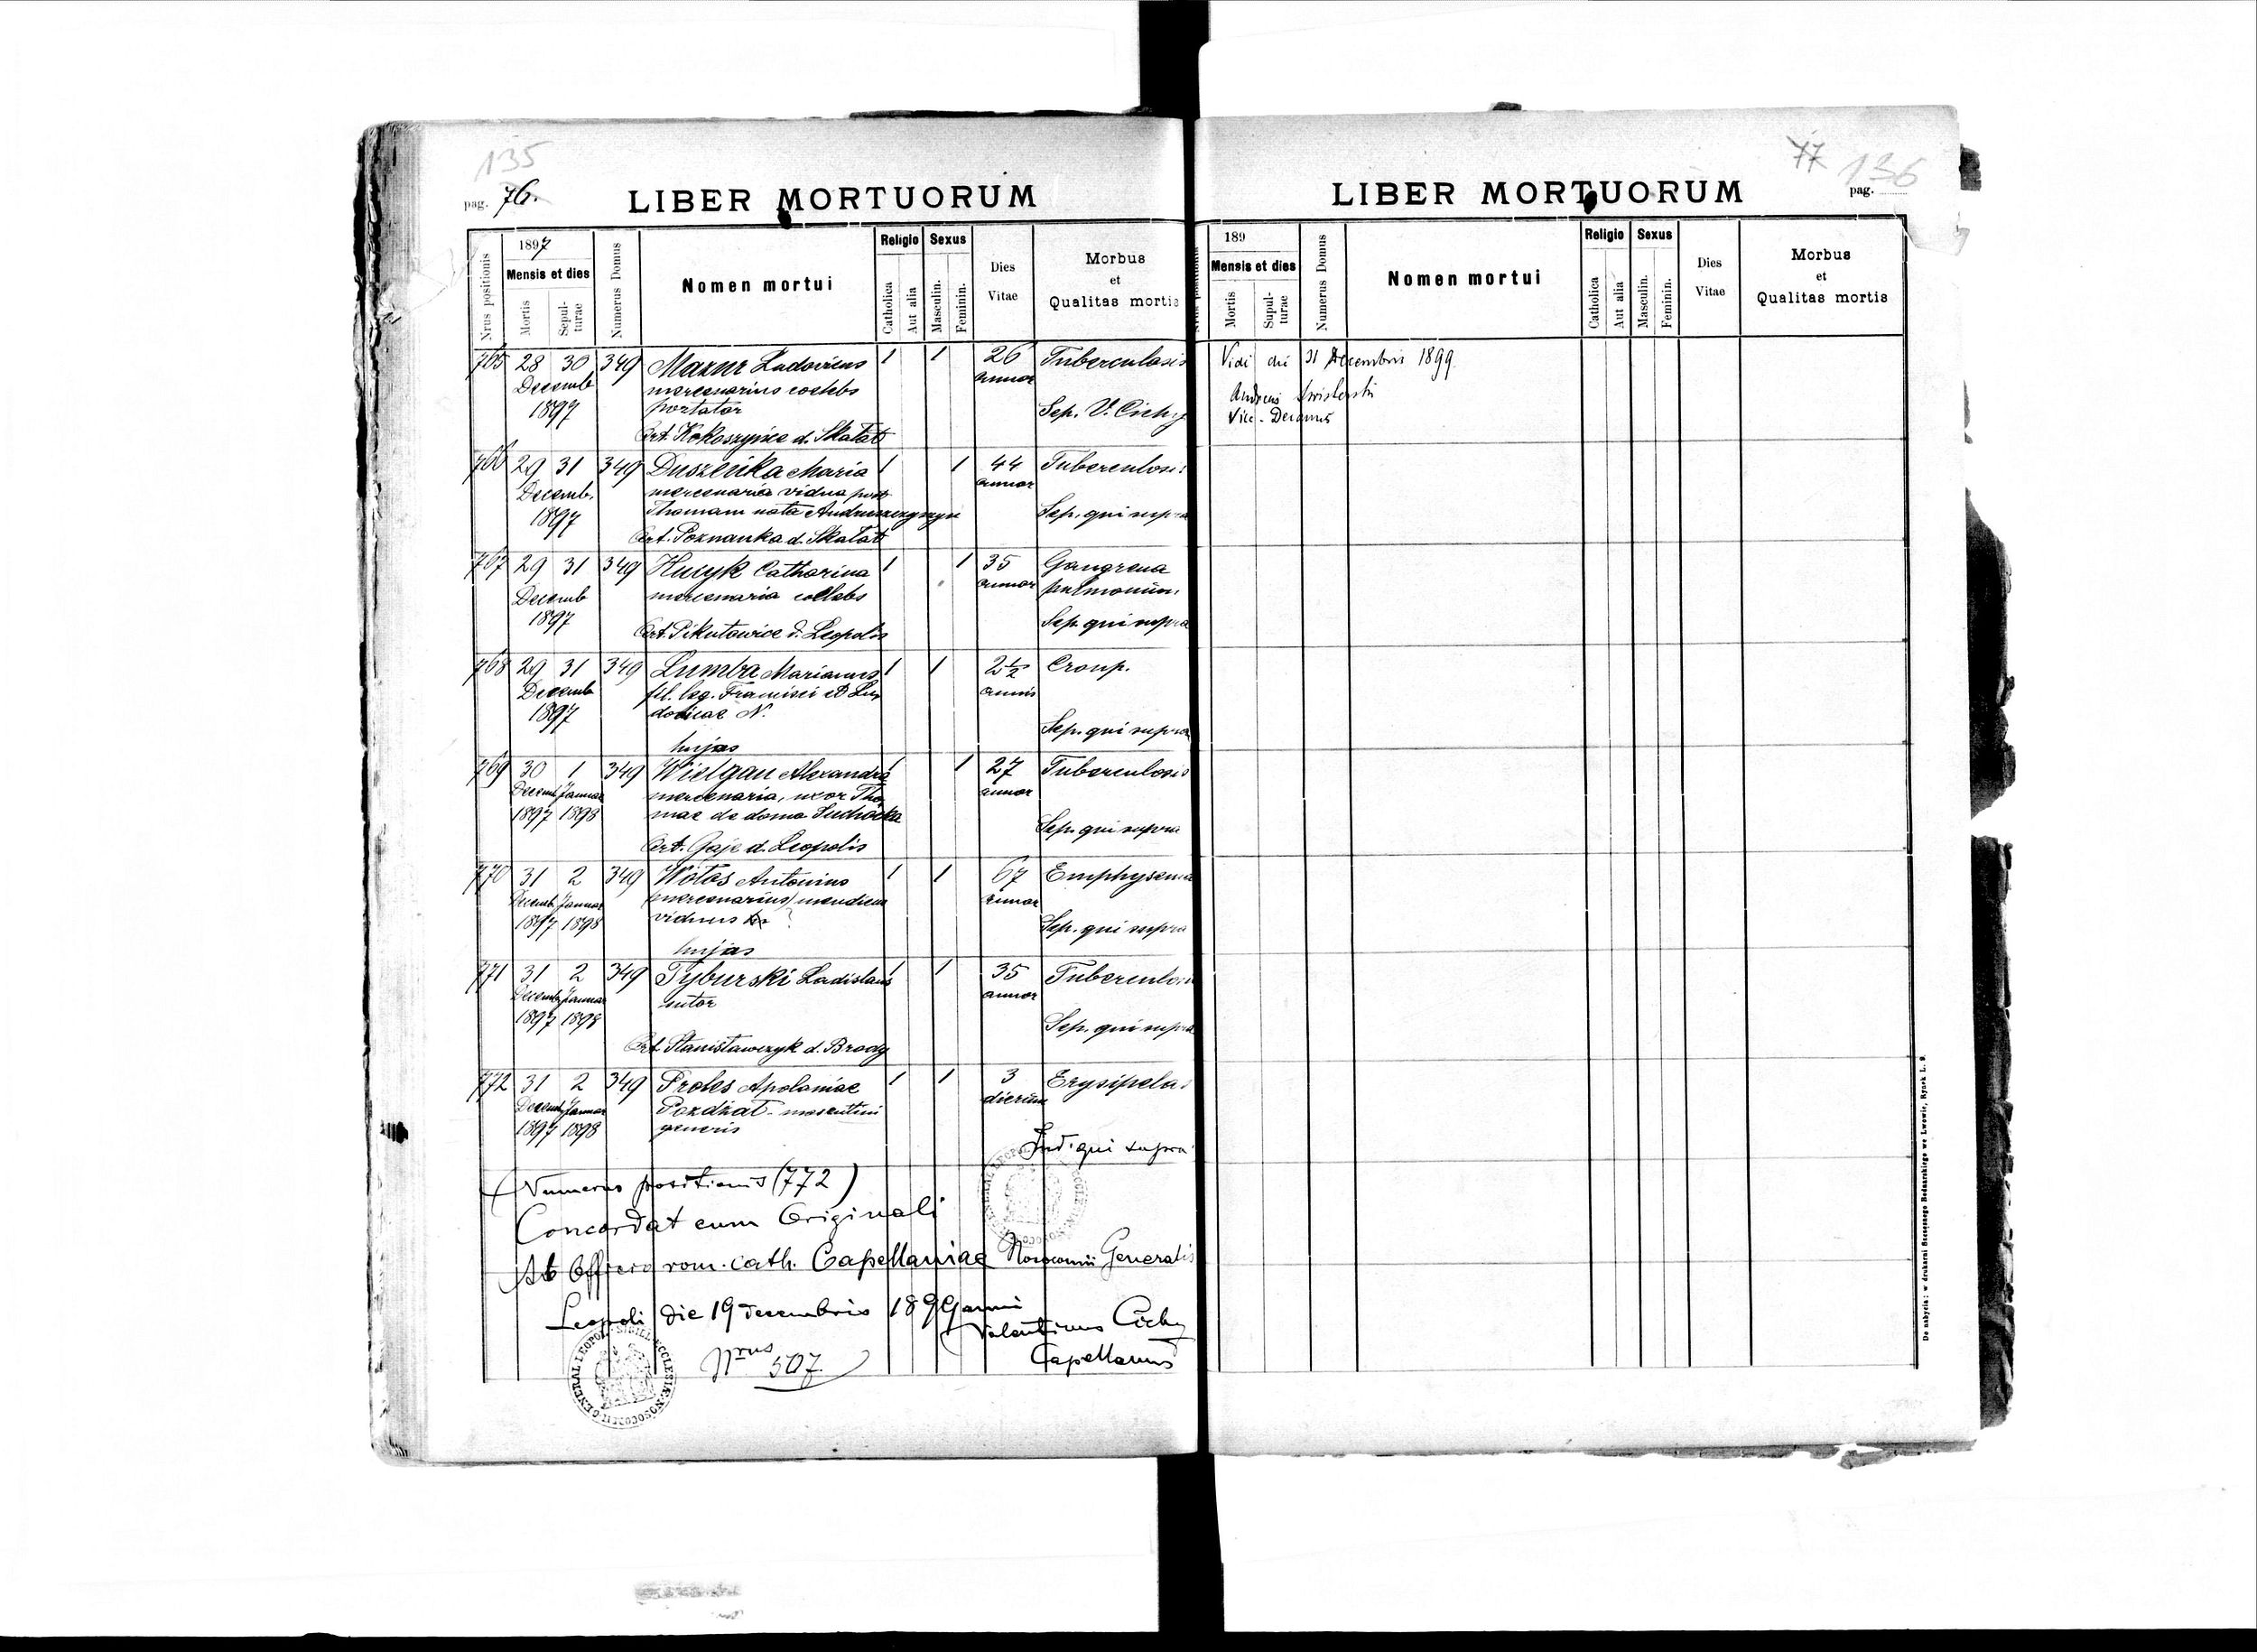 135
pag. 76.
LIBER MORTUORUM
Nrus positionis
1897
Mensis et dies
Mortis
Sepul-turae
Numerus Domus
Nomen mortui
Religio
Catholica
Aut alia
Sexus
Masculin.
Feminin.
Dies Vitae
Morbus et Qualitas mortis
765 28 30 349 Mazur Ludovicus 1 1 26 Tuberculosis
Decemb mercenarius coelebs annor
1897 portator Sep. V. Cichy
Ort. Kokoszyńce d. Skałat
766 29 31 349 Duszeńka Maria 1 1 44 Tuberculosis
Decemb. mercenaria vidua post annor
1897 Thomam nata Andruszczyszyn Sep. qui supra
Ort. Poznanka d. Skałat
767 29 31 349 Hucyk Catharina 1 1 35 Gangrena
Decemb mercenaria coelebs annor pulmonum
1897 Sep. qui supra
Ort. Pikułowice d. Leopolis
768 29 31 349 Lumba Marianus 1 1 2½ Croup.
Decemb fil. leg. Francisci et Lu annis
1897 dovicae N.
Sep. qui supra
hujas
769 30 1 349 Wielgan Alexandra 1 1 27 Tuberculosis
Decemb Januar mercenaria, uxor Tho annor
1897 1898 mae de domo Suchocka
Sep. qui supra
Ort. Gaje d. Leopolis
770 31 2 349 Wotas Antonius 1 1 67 Emphysema
Decemb Januar mercenarius/mendicus annor
1897 1898 viduus ? Sep. qui supra
hujas
771 31 2 349 Tyburski Ladislaus 1 1 35 Tuberculosis
Decemb Januar sutor annor
1897 1898 Sep. qui supra
Ort. Stanisławczyk d. Brody
772 31 2 349 Proles Apoloniae 1 1 3 Erysipelas
Decemb Januar Pozdżał masculini dierum
1897 1898 generis
qui supra
Numerus positionis (772)
Concordat cum Originali
Ab Officio rom. cath. Capellaniae Nosocomii Generalis
Leopoli die 19 Decembris 1899 anni
Valentinus Cichy
Nrus 507. Capellanus
77 136
pag.
LIBER MORTUORUM
Nrus positionis
189
Mensis et dies
Mortis
Sepul-turae
Numerus Domus
Nomen mortui
Religio
Catholica
Aut alia
Sexus
Masculin.
Feminin.
Dies Vitae
Morbus et Qualitas mortis
Vidi die 31 Decembris 1899.
Andreas
Vice-Decanus
Do nabycia: w drukarni Szczęsnego Bednarskiego we Lwowie, Rynek L. 9.